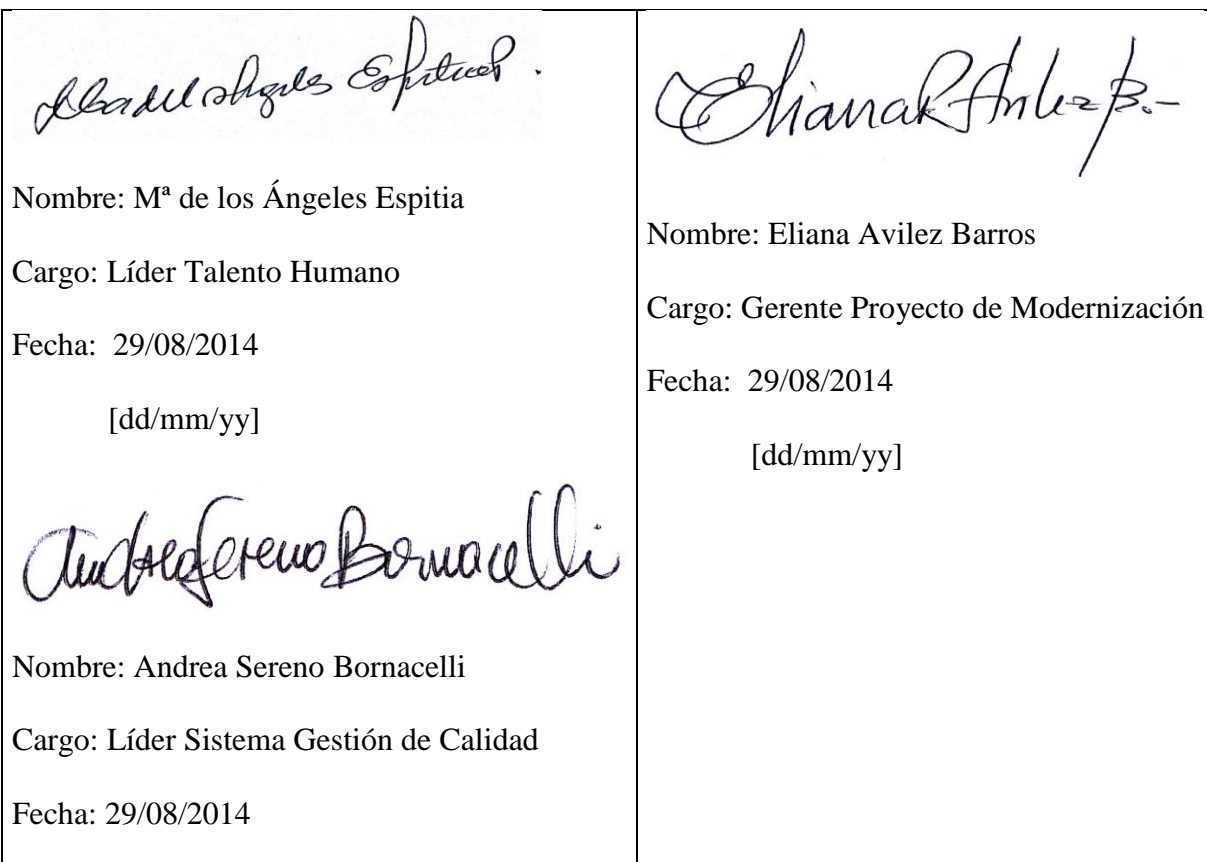 Nombre: Mª de los Ángeles Espitia
Cargo: Líder Talento Humano
Fecha: 29/08/2014
[dd/mm/yy]
Andrea Sereno Bornacelli
Nombre: Andrea Sereno Bornacelli
Cargo: Líder Sistema Gestión de Calidad
Fecha: 29/08/2014
Eliana R Avilez B.-
Nombre: Eliana Avilez Barros
Cargo: Gerente Proyecto de Modernización
Fecha: 29/08/2014
[dd/mm/yy]